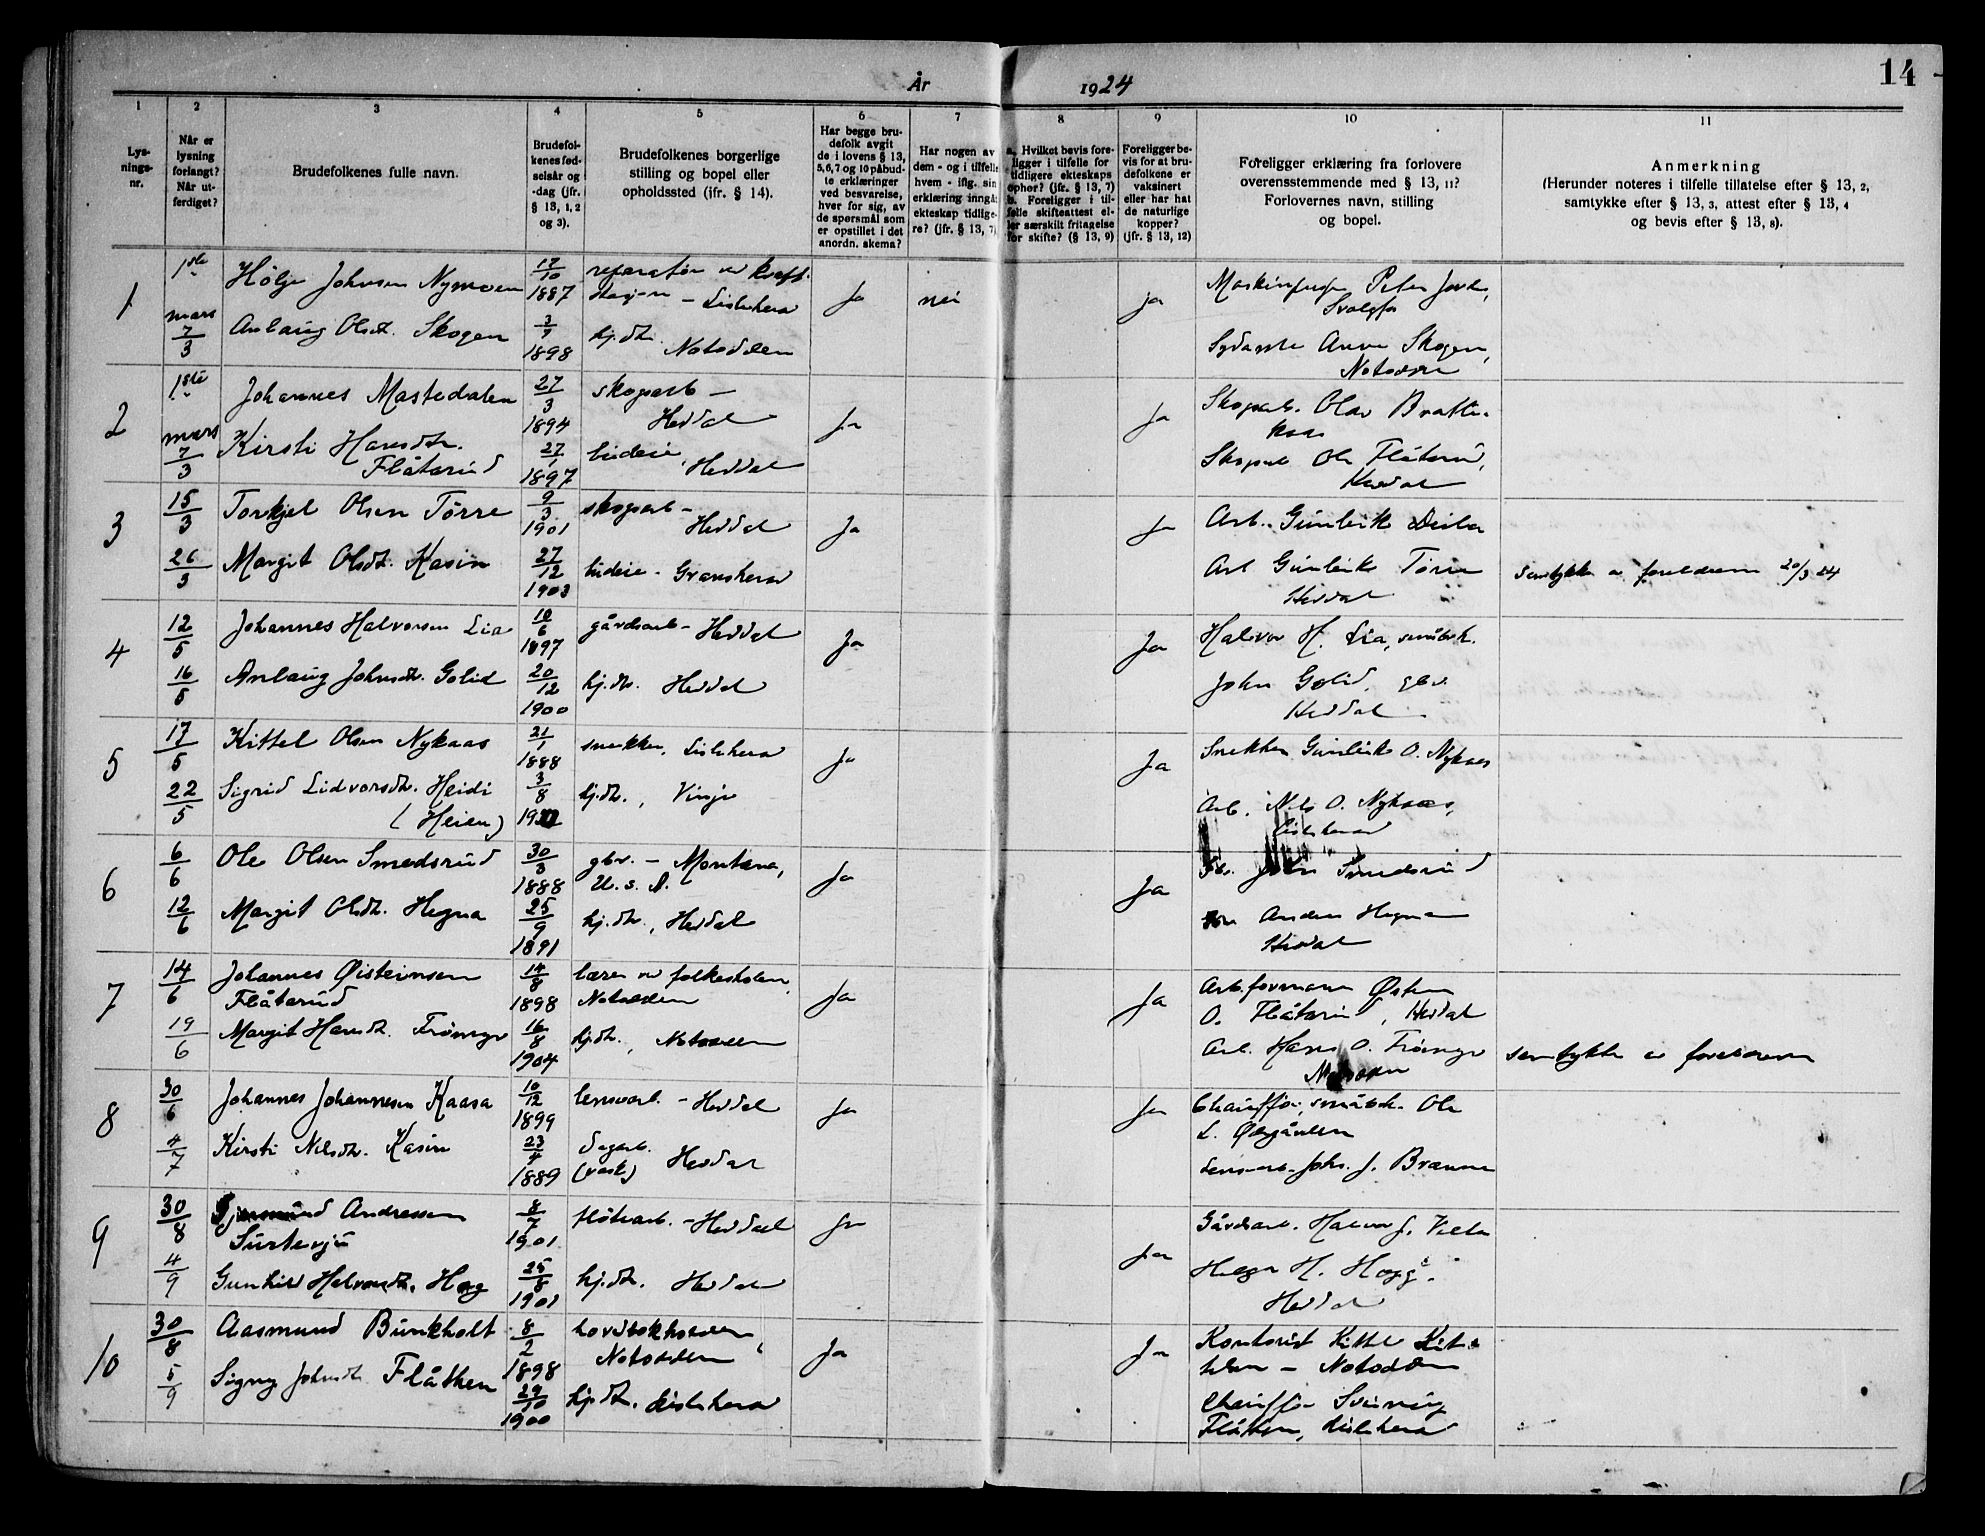 14
År 1924
1
2
3
4
5
6
7
8
9
10
11
Lys-
nings-
nr.
Når er
lysning
forlangt?
Når ut-
ferdiget?
Brudefolkenes fulle navn.
Brudefol-
kenes fød-
selsår og
-dag (jfr.
§ 13, 1, 2
og 3).
Brudefolkenes borgerlige
stilling og bopel eller
opholdssted (jfr. § 14).
Har begge bru-
defolk avgit
de i lovens § 13,
5, 6, 7 og 10 påbud-
te erklæringer
ved besvarelse,
hver for sig, av
de spørsmål som
er opstillet i det
anordn. skema?
Har nogen av
dem - og i tilfelle
hvem - iflg. sin
erklæring inngått
ekteskap tidlige-
re? (jfr. § 13, 7)
a. Hvilket bevis fore-
ligger i tilfelle for
tidligere ekteskaps
ophør? (jfr. § 13, 7)
b. Foreligger i til-
felle skifteattest el-
ler særskilt fritagelse
for skifte? (§ 13, 9)
Foreligger be-
vis for at bru-
defolkene er
vaksinert
eller har hat
de naturlige
kopper?
(jfr. § 13, 12)
Foreligger erklæring fra forlovere
overensstemmende med § 13, 11?
Forlovernes navn, stilling
og bopel.
Anmerkning
(Herunder noteres i tilfelle tillatelse efter § 13, 2,
samtykke efter § 13, 3, attest efter § 13, 4
og bevis efter § 13, 8).
1
1ste mars 7/3
Hølje Johnsen Nymoen
17/10 1887
reparatør ved kraft-
stasjon – Lisleherad
ja
nei
ja
Peter
Svelgfos
Anlaug Olsdt. Skogen
3/7 1898
hj.dt. Notodden
Sydame Anne Skogen,
Notodden
2
1ste mars 7/3
Johannes Mastedalen
27/3 1894
skogarb –
Heddal
Ja
Ja
Skogarb. Olav Bratte-
kaas
Kirsti Hansdt.
Flåterud
27/1 1897
budeie, Heddal
Skogarb Ole Flåterud,
Heddal
3
15/3
26/3
Torkjel Olsen Tørre
9/3 1901
skogarb –
Heddal
Ja
Ja
Arb. Gunleik
Margit Olsdt. Kasin
27/12 1903
budeie – Gransherad
Arb Gunleik Tørre
Heddal
samtykke av foreldrene 20/3 24
4
12/5
16/5
Johannes Halvorsen Lia
10/6 1897
gårdsarb – Heddal
Ja
Ja
Halvor H. Lia, småbrk.
Anlaug Johnsdt. Golid
20/12 1900
hj.dt. Heddal
John Golid, gbr.
Heddal
5
17/5
22/5
Kittel Olsen Nykaas
21/1 1888
snekker, Lisleherad
Ja
Ja
Snekker Gunleik O. Nykaas
Sigrid Lidvorsdt. Heidi
(Heien)
3/8
hj.dt., Vinje
Arb. Nils O. Nykaas,
Lisleherad
6
6/6
12/6
Ole Olsen Smedsrud
30/3 1888
gbr. – Montana,
U. s. A.
Ja
Ja
John Smedsrud
Margit Olsdt. Hegna
25/9 1891
hj.dt., Heddal
Anders Hegna
Heddal
7
14/6
19/6
Johannes Øisteinsen
Flåterud
14/8 1898
lærer ved folkeskolen,
Notodden
Ja
Ja
Arb.formann Østen
O. Flåterud, Heddal
Margit Hansdt. Trømyr
16/8 1904
hj.dt., Notodden
Arb. Hans O. Trømyr
Notodden
samtykke av foreldrene
8
30/6
4/7
Johannes Johannesen Kaasa
10/12 1899
lensearb. – Heddal
Ja
Ja
Chauffør, småbrk. Ole
L. Øygården
Kirsti Nilsdt. Kasin
23/4 1889
Dagarb.
(vask) Heddal
Lensearb. Johs. J.
9
30/8
4/9
Andressen
Surtevju
8/7 1901
fløterarb. – Heddal
Ja
Ja
Gårdsarb. Halvor J.
Gunhild Halvorsdt. Hogg
25/8 1901
hj.dt. Heddal
Helge H. Hogg.
Heddal
10
30/8
5/9
Aasmund Bunkholt
8/2 1898
hovedbokholder,
Notodden
Ja
Ja
Kontorist Kittel Kit-
telsen – Notodden
Signy Johnsdt Flåthen
29/10 1900
hj.dt. Lisleherad
Chauffør Sveinung
Flåthen, Lisleherad